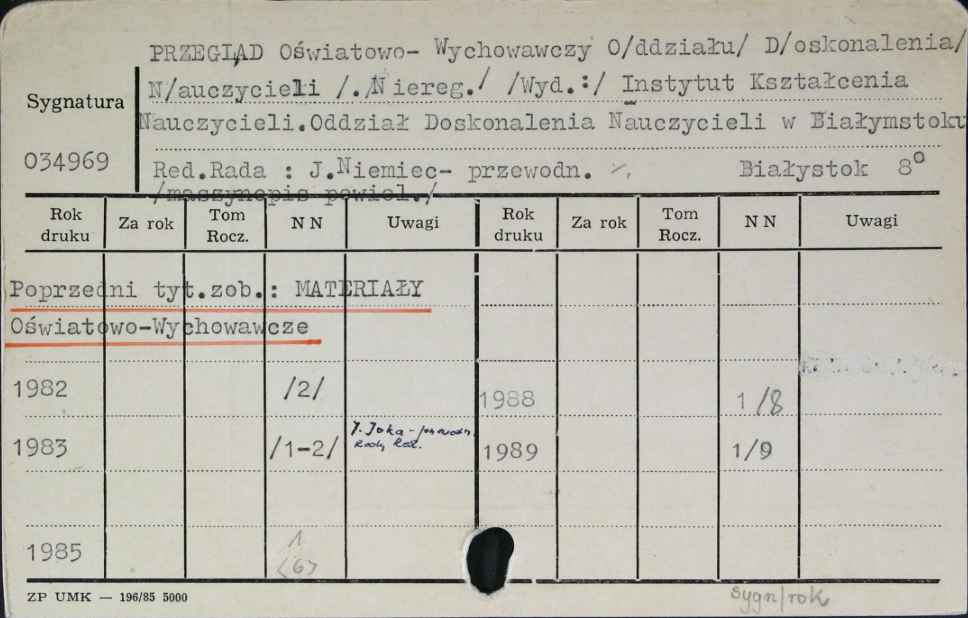 PRZEGLĄD Oświatowo- Wychowawczy O/ddziału/ D/oskonalenia/
N/auczycieli /./Niereg./ /Wyd.:/ Instytut Kształcenia
Sygnatura
Nauczycieli.Oddział Doskonalenia Nauczycieli w Białymstoku
034969
Red.Rada : J.Niemiec- przewodn. Białystok 8°
/maszynopis powiel./
Rok druku Za rok Tom Rocz. N N Uwagi Rok druku Za rok Tom Rocz. N N Uwagi
Poprzedni tyt.zob.: MATERIAŁY
Oświatowo-Wychowawcze
1982 /2/ 1988 1/8
1983 /1-2/ J. Joka - Rady Red. 1989 1/9
1985 1 <6>
ZP UMK — 196/85 5000
Sygn/rok